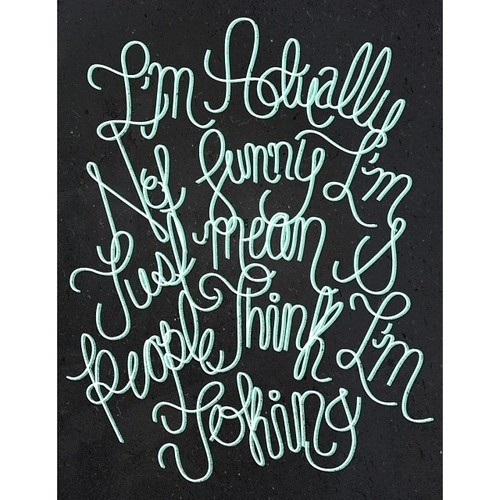 I'm Actually
Not funny I'm
Just mean &
people Think I'm
Joking